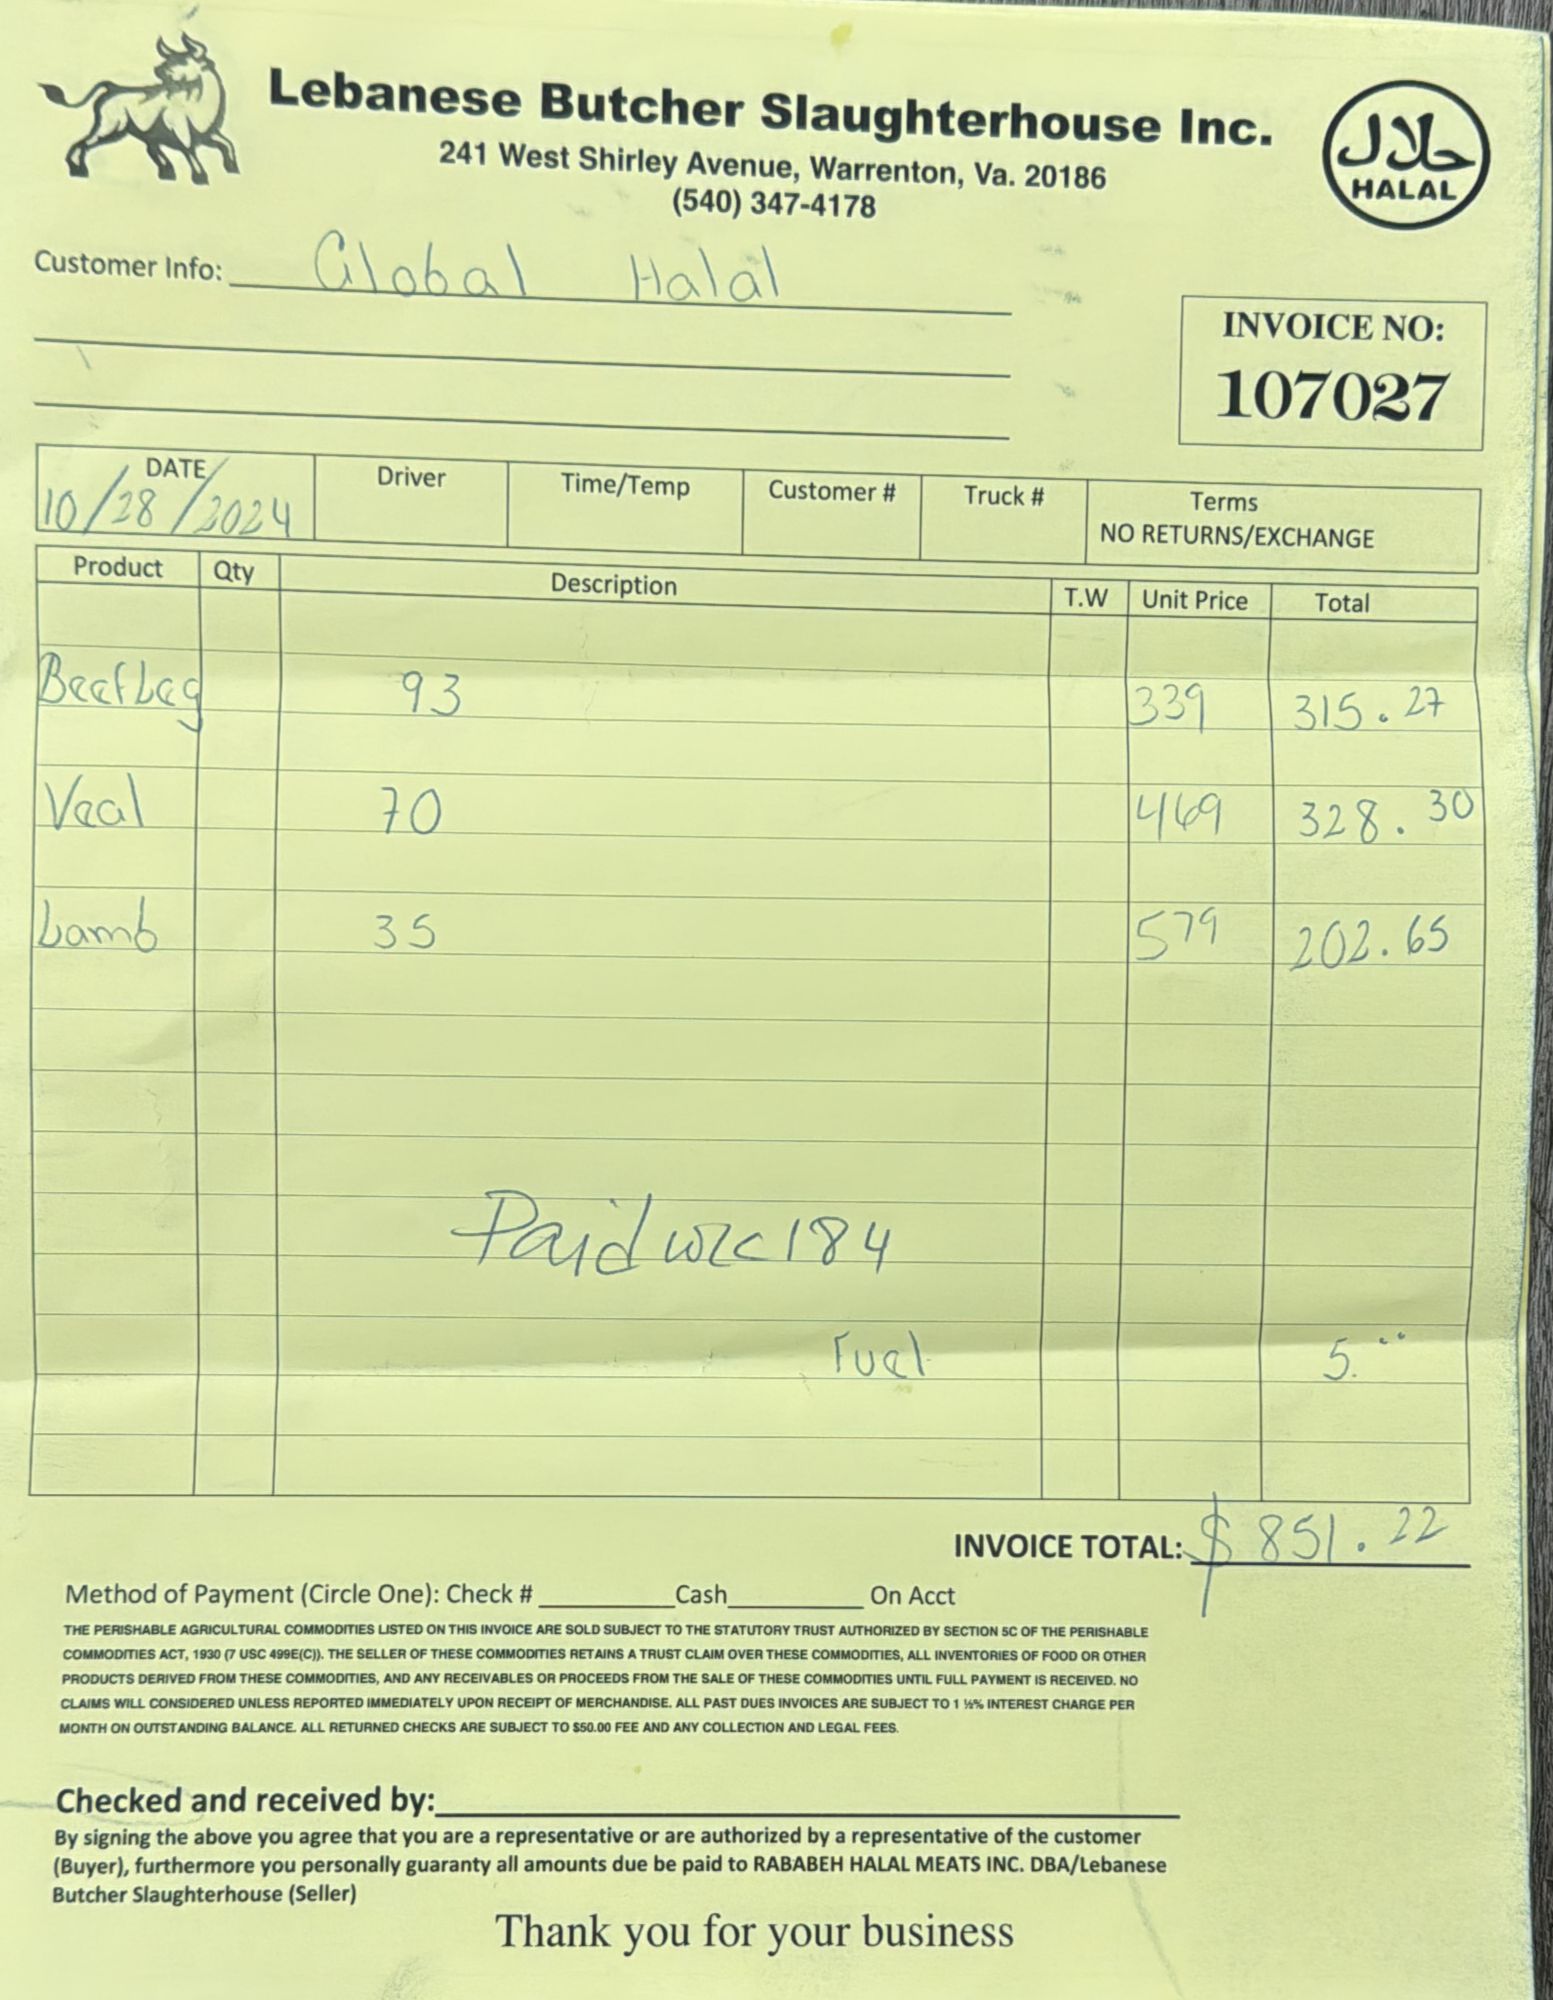 Lebanese Butcher Slaughterhouse Inc.
241 West Shirley Avenue, Warrenton, Va. 20186
(540) 347-4178
حلال
HALAL
Customer Info: Global Halal
INVOICE NO:
107027
DATE Driver Time/Temp Customer # Truck # Terms
10/28/2024 NO RETURNS/EXCHANGE
Product Qty Description T.W Unit Price Total
Beef Leg 93 339 315.27
Veal 70 469 328.30
Lamb 35 579 202.65
Paid 184
Fuel 5.
INVOICE TOTAL: $851.22
Method of Payment (Circle One): Check # Cash On Acct
THE PERISHABLE AGRICULTURAL COMMODITIES LISTED ON THIS INVOICE ARE SOLD SUBJECT TO THE STATUTORY TRUST AUTHORIZED BY SECTION 5C OF THE PERISHABLE
COMMODITIES ACT, 1930 (7 USC 499E(C)). THE SELLER OF THESE COMMODITIES RETAINS A TRUST CLAIM OVER THESE COMMODITIES, ALL INVENTORIES OF FOOD OR OTHER
PRODUCTS DERIVED FROM THESE COMMODITIES, AND ANY RECEIVABLES OR PROCEEDS FROM THE SALE OF THESE COMMODITIES UNTIL FULL PAYMENT IS RECEIVED. NO
CLAIMS WILL CONSIDERED UNLESS REPORTED IMMEDIATELY UPON RECEIPT OF MERCHANDISE. ALL PAST DUES INVOICES ARE SUBJECT TO 1 ½% INTEREST CHARGE PER
MONTH ON OUTSTANDING BALANCE. ALL RETURNED CHECKS ARE SUBJECT TO $50.00 FEE AND ANY COLLECTION AND LEGAL FEES.
Checked and received by:
By signing the above you agree that you are a representative or are authorized by a representative of the customer
(Buyer), furthermore you personally guaranty all amounts due be paid to RABABEH HALAL MEATS INC. DBA/Lebanese
Butcher Slaughterhouse (Seller)
Thank you for your business